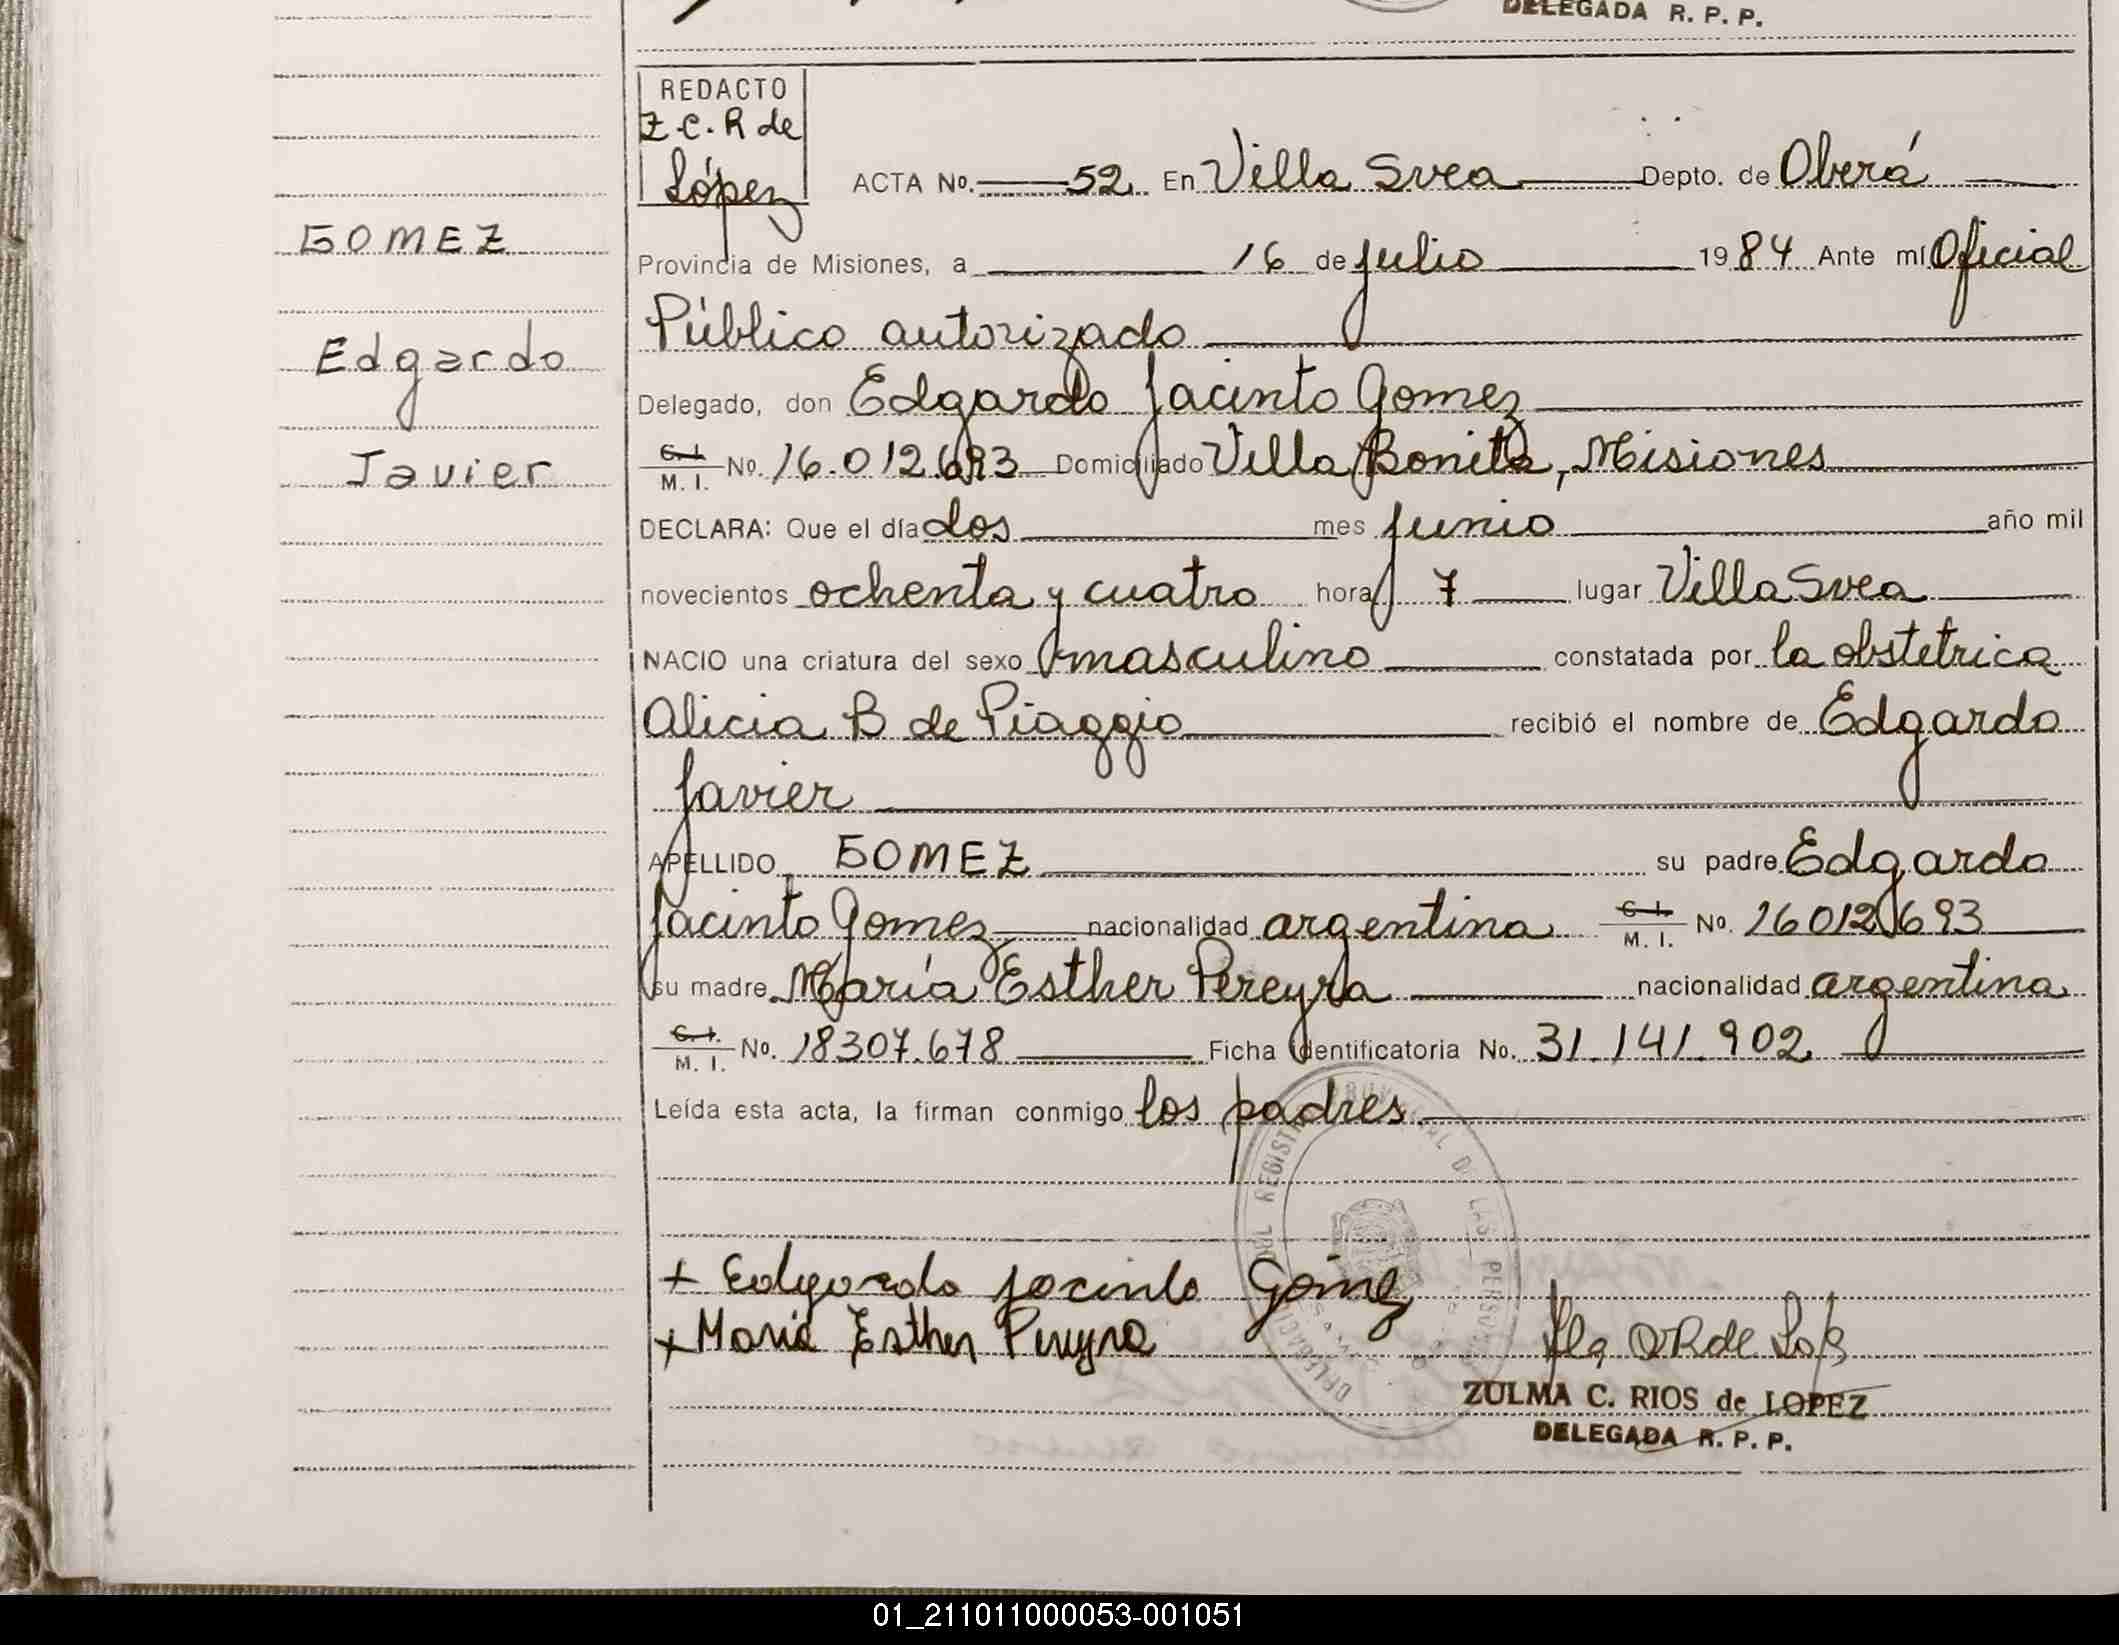 DELEGADA R. P. P.
REDACTO
Z.C.R de
López
ACTA No. 52 En Villa Svea Depto. de Oberá
GOMEZ
Provincia de Misiones, a 16 de julio 1984 Ante mí Oficial
Público autorizado
Edgardo
Delegado, don Edgardo Jacinto Gomez
Javier
C. I. M. I. No. 16.012.693 Domiciliado Villa Bonita, Misiones
DECLARA: Que el día dos mes junio año mil
novecientos ochenta y cuatro hora 7 lugar Villa Svea
NACIO una criatura del sexo masculino constatada por la obstetrica
Alicia B de Piaggio recibió el nombre de Edgardo
Javier
APELLIDO GOMEZ su padre Edgardo
Jacinto Gomez nacionalidad argentina C. I. M. I. No. 16012693
su madre María Esther Pereyra nacionalidad argentina
C. I. M. I. No. 18307.678 Ficha identificatoria No. 31.141.902
Leída esta acta, la firman conmigo los padres
DELEGACION DEL REGISTRO PROVINCIAL DE LAS PERSONAS
+ Edgardo Jacinto Gómez
+ Maria Esther Pereyra
ZULMA C. RIOS de LOPEZ
DELEGADA R. P. P.
01_211011000053-001051